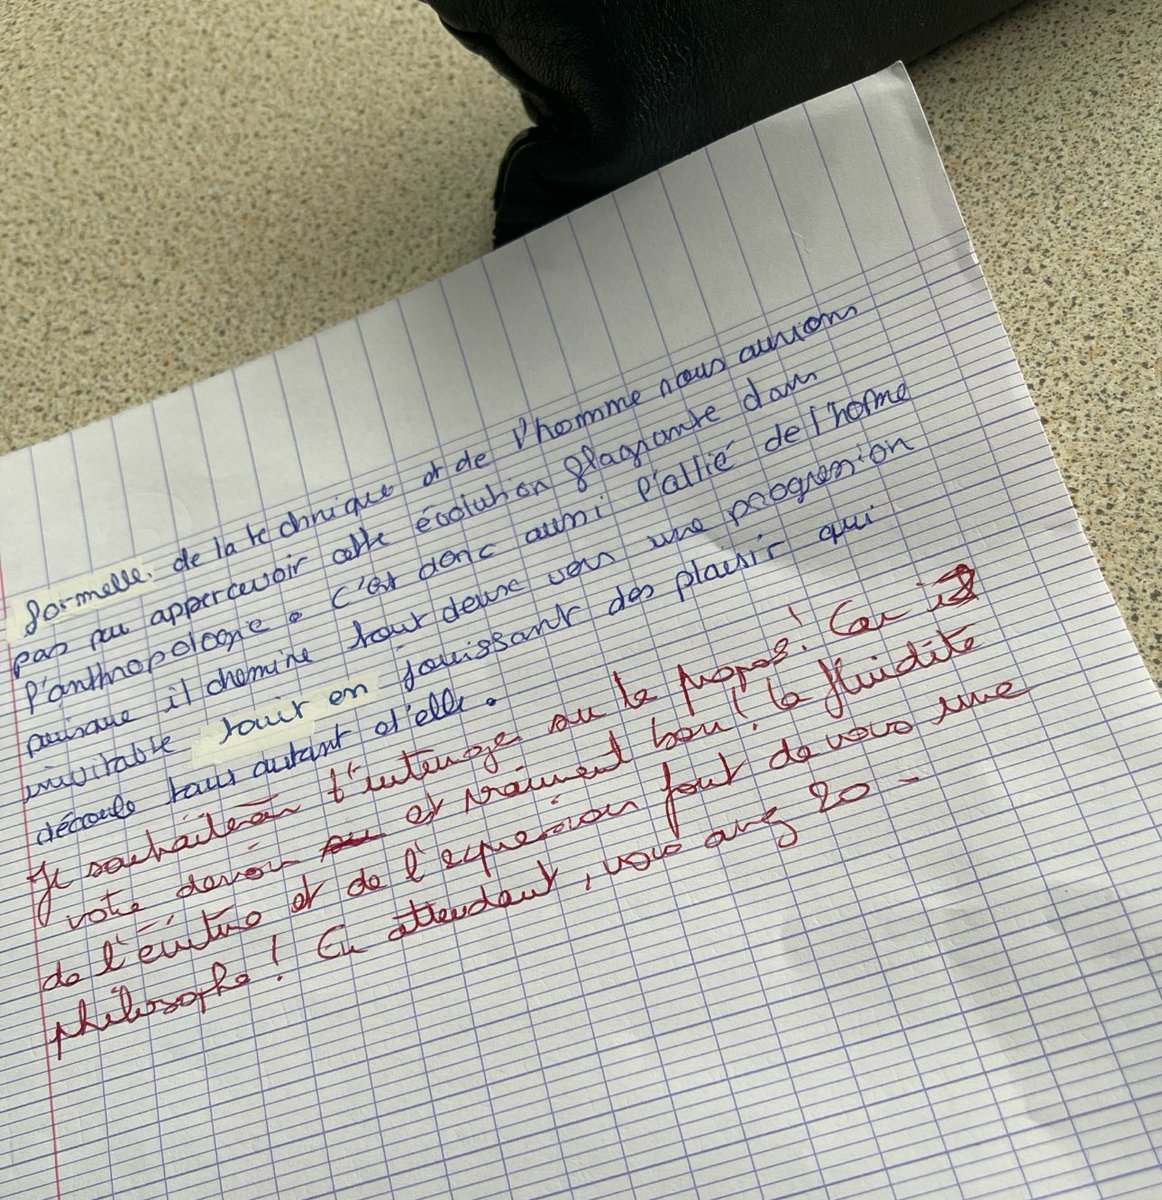 formelle. de la technique et de l'homme nous aurions
pas pu appercevoir cette évolution flagrante dans
l'anthropologie. C'est donc aussi l'allié de l'home
puisque il chemine tout deux vers une progression
inévitable tout en jouissant des plaisir qui
découle tous autant d'elle.
Je souhaiterais t'interroger sur le propos! Car
votre devoir est vraiment bon! la fluidité
de l'écriture et de l'expression font de vous une
philosophe! En attendant, vous avez 20 -